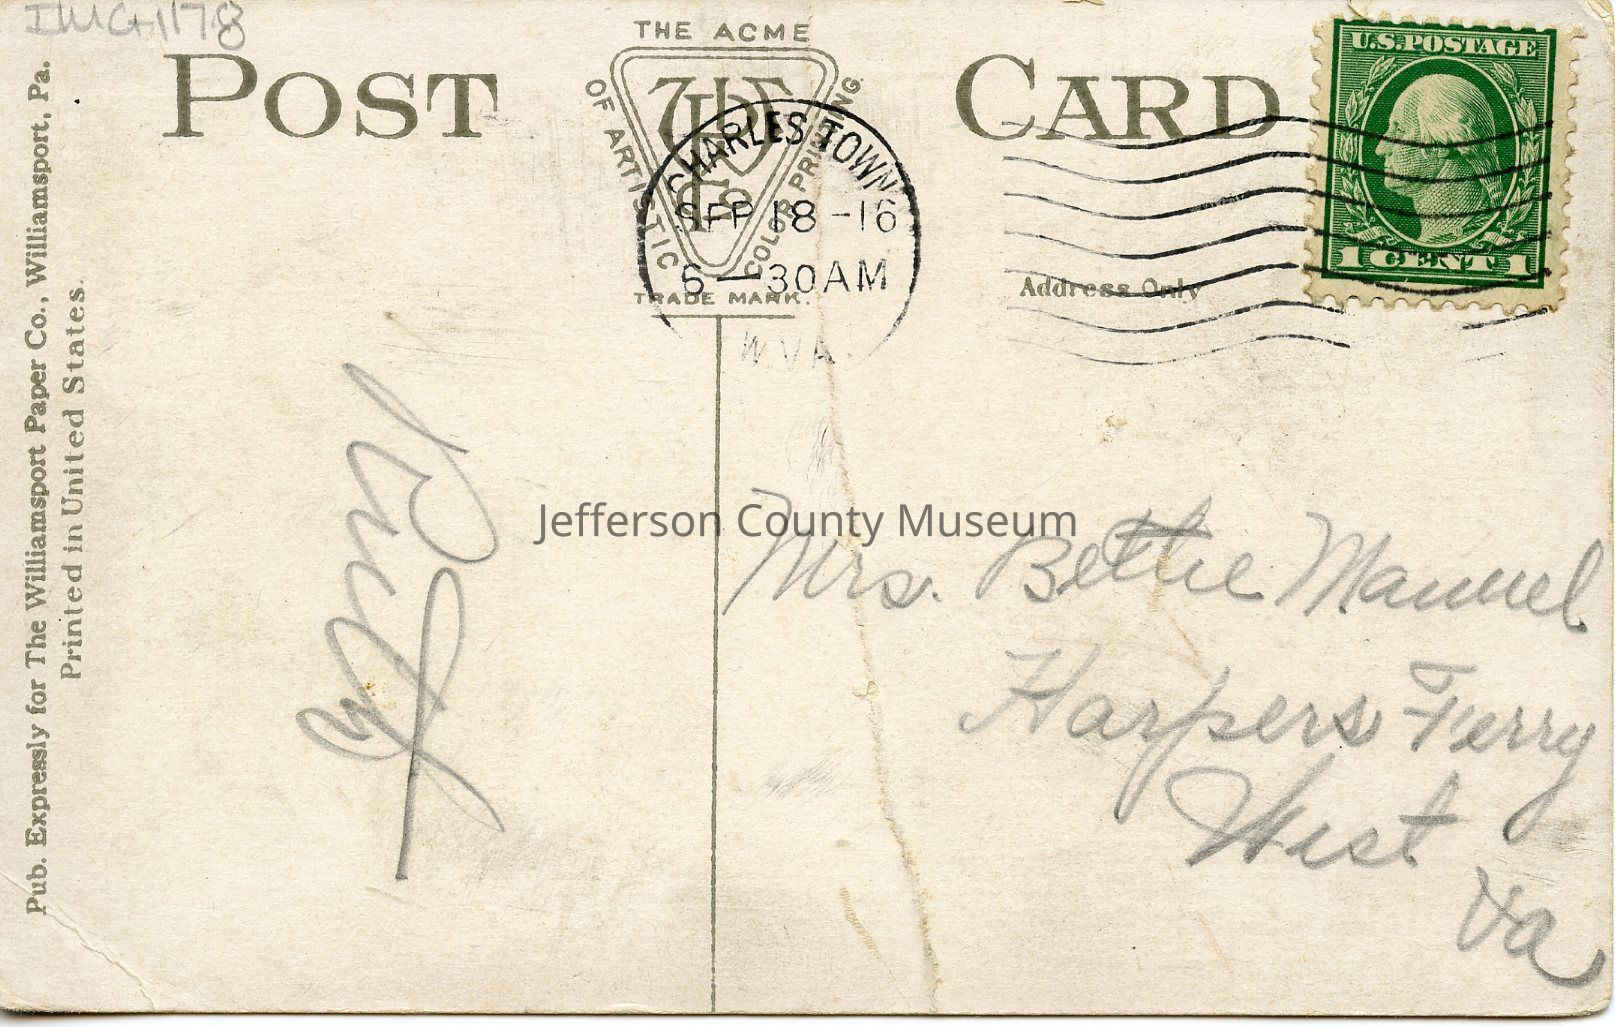 IMG1178
POST CARD
THE ACME
OF ARTISTIC
COLOR PRINTING.
TRADE MARK.
CHARLES TOWN
SEP 18 -16
6 - 30 AM
W VA.
U.S. POSTAGE
1 CENT 1
Address Only
Pub. Expressly for The Williamsport Paper Co., Williamsport, Pa.
Printed in United States.
Jefferson County Museum
Mrs. Bettie Manuel
Harpers Ferry
West
Va